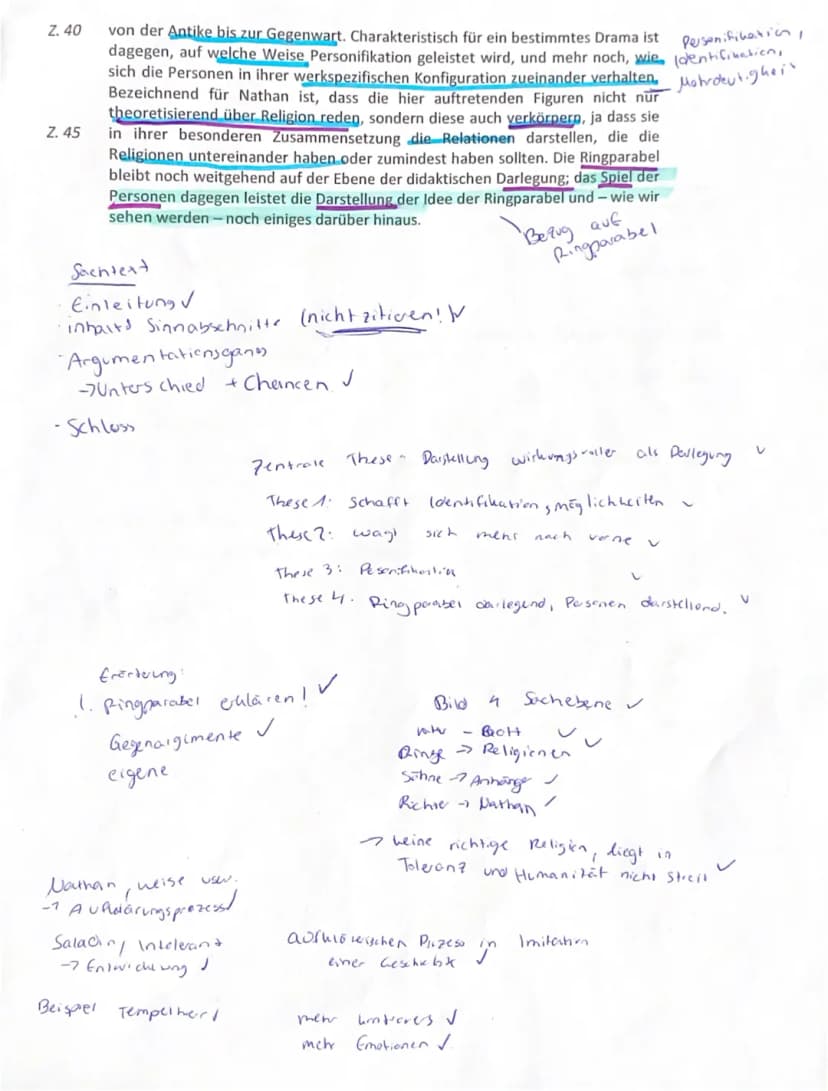 Z. 40 von der Antike bis zur Gegenwart. Charakteristisch für ein bestimmtes Drama ist
dagegen, auf welche Weise Personifikation geleistet wird, und mehr noch, wie
sich die Personen in ihrer werkspezifischen Konfiguration zueinander verhalten.
Bezeichnend für Nathan ist, dass die hier auftretenden Figuren nicht nur
theoretisierend über Religion reden, sondern diese auch verkörpern, ja dass sie
Z. 45 in ihrer besonderen Zusammensetzung die Relationen darstellen, die die
Religionen untereinander haben oder zumindest haben sollten. Die Ringparabel
bleibt noch weitgehend auf der Ebene der didaktischen Darlegung; das Spiel der
Personen dagegen leistet die Darstellung der Idee der Ringparabel und – wie wir
sehen werden – noch einiges darüber hinaus.
Personifikation,
Identifikation,
Mehrdeutigkeit
Bezug auf
Ringparabel
Sachtext
· Einleitung ✓
· inhaltl Sinnabschnitte (nicht zitieren!) ✓
- Argumentationsgang
→ Unterschied + Chancen ✓
- Schluss
Zentrale These - Darstellung wirkungsvoller als Darlegung ✓
These 1: schafft Identifikation, möglichkeiten ✓
These 2: wagt sich mehr nach vorne ✓
These 3: Personifikation ✓
These 4: Ringparabel darlegend, Personen darstellend. ✓
Erörterung:
1. Ringparabel erklären! ✓
Gegenargumente ✓
eigene
Bild → Sachebene ✓
- Gott ✓
Ringe → Religionen ✓
Söhne → Anhänger ✓
Richter → Nathan ✓
→ keine richtige Religion, liegt in
Toleranz und Humanität nicht Streit ✓
Nathan, weise usw.
→ Aufklärungsprozess ✓
Saladin, intolerant
→ Entwicklung ✓
aufklärerischen Prozess in Imitation
einer Geschichte ✓
Beispiel Tempelherr ✓
mehr ✓
mehr Emotionen ✓